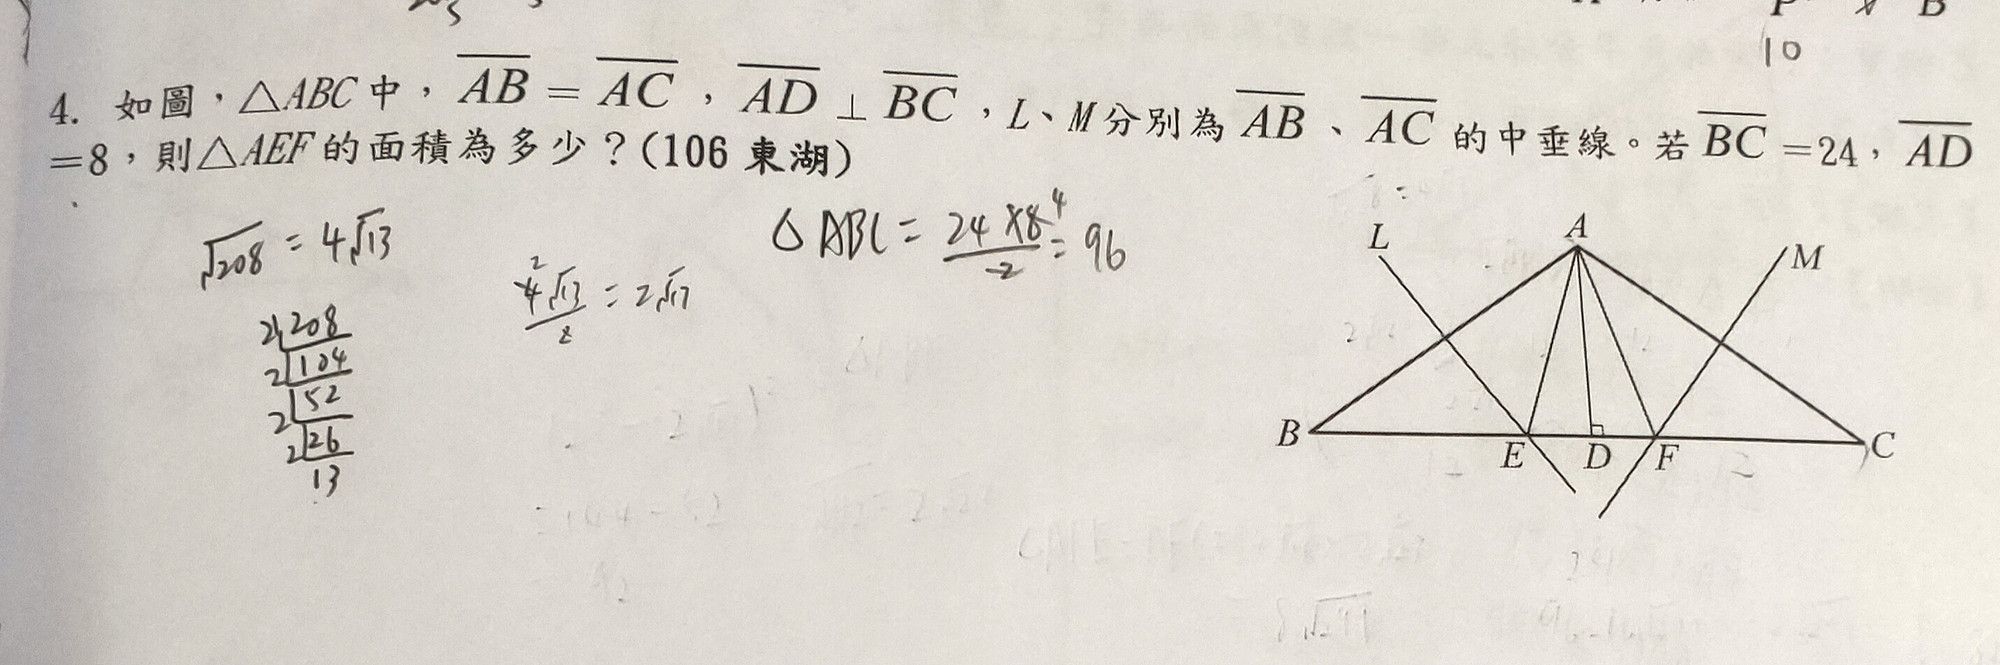 P
B
10
4. 如圖，△ABC中，AB=AC，AD⊥BC，L、M分別為AB、AC的中垂線。若BC=24，AD
=8，則△AEF的面積為多少？(106 東湖)
√208 = 4√13
2 208
2 104
2 52
2 26
13
△ABC = 24×8 4 / 2 = 96
L
A
M
B
E
D
F
C